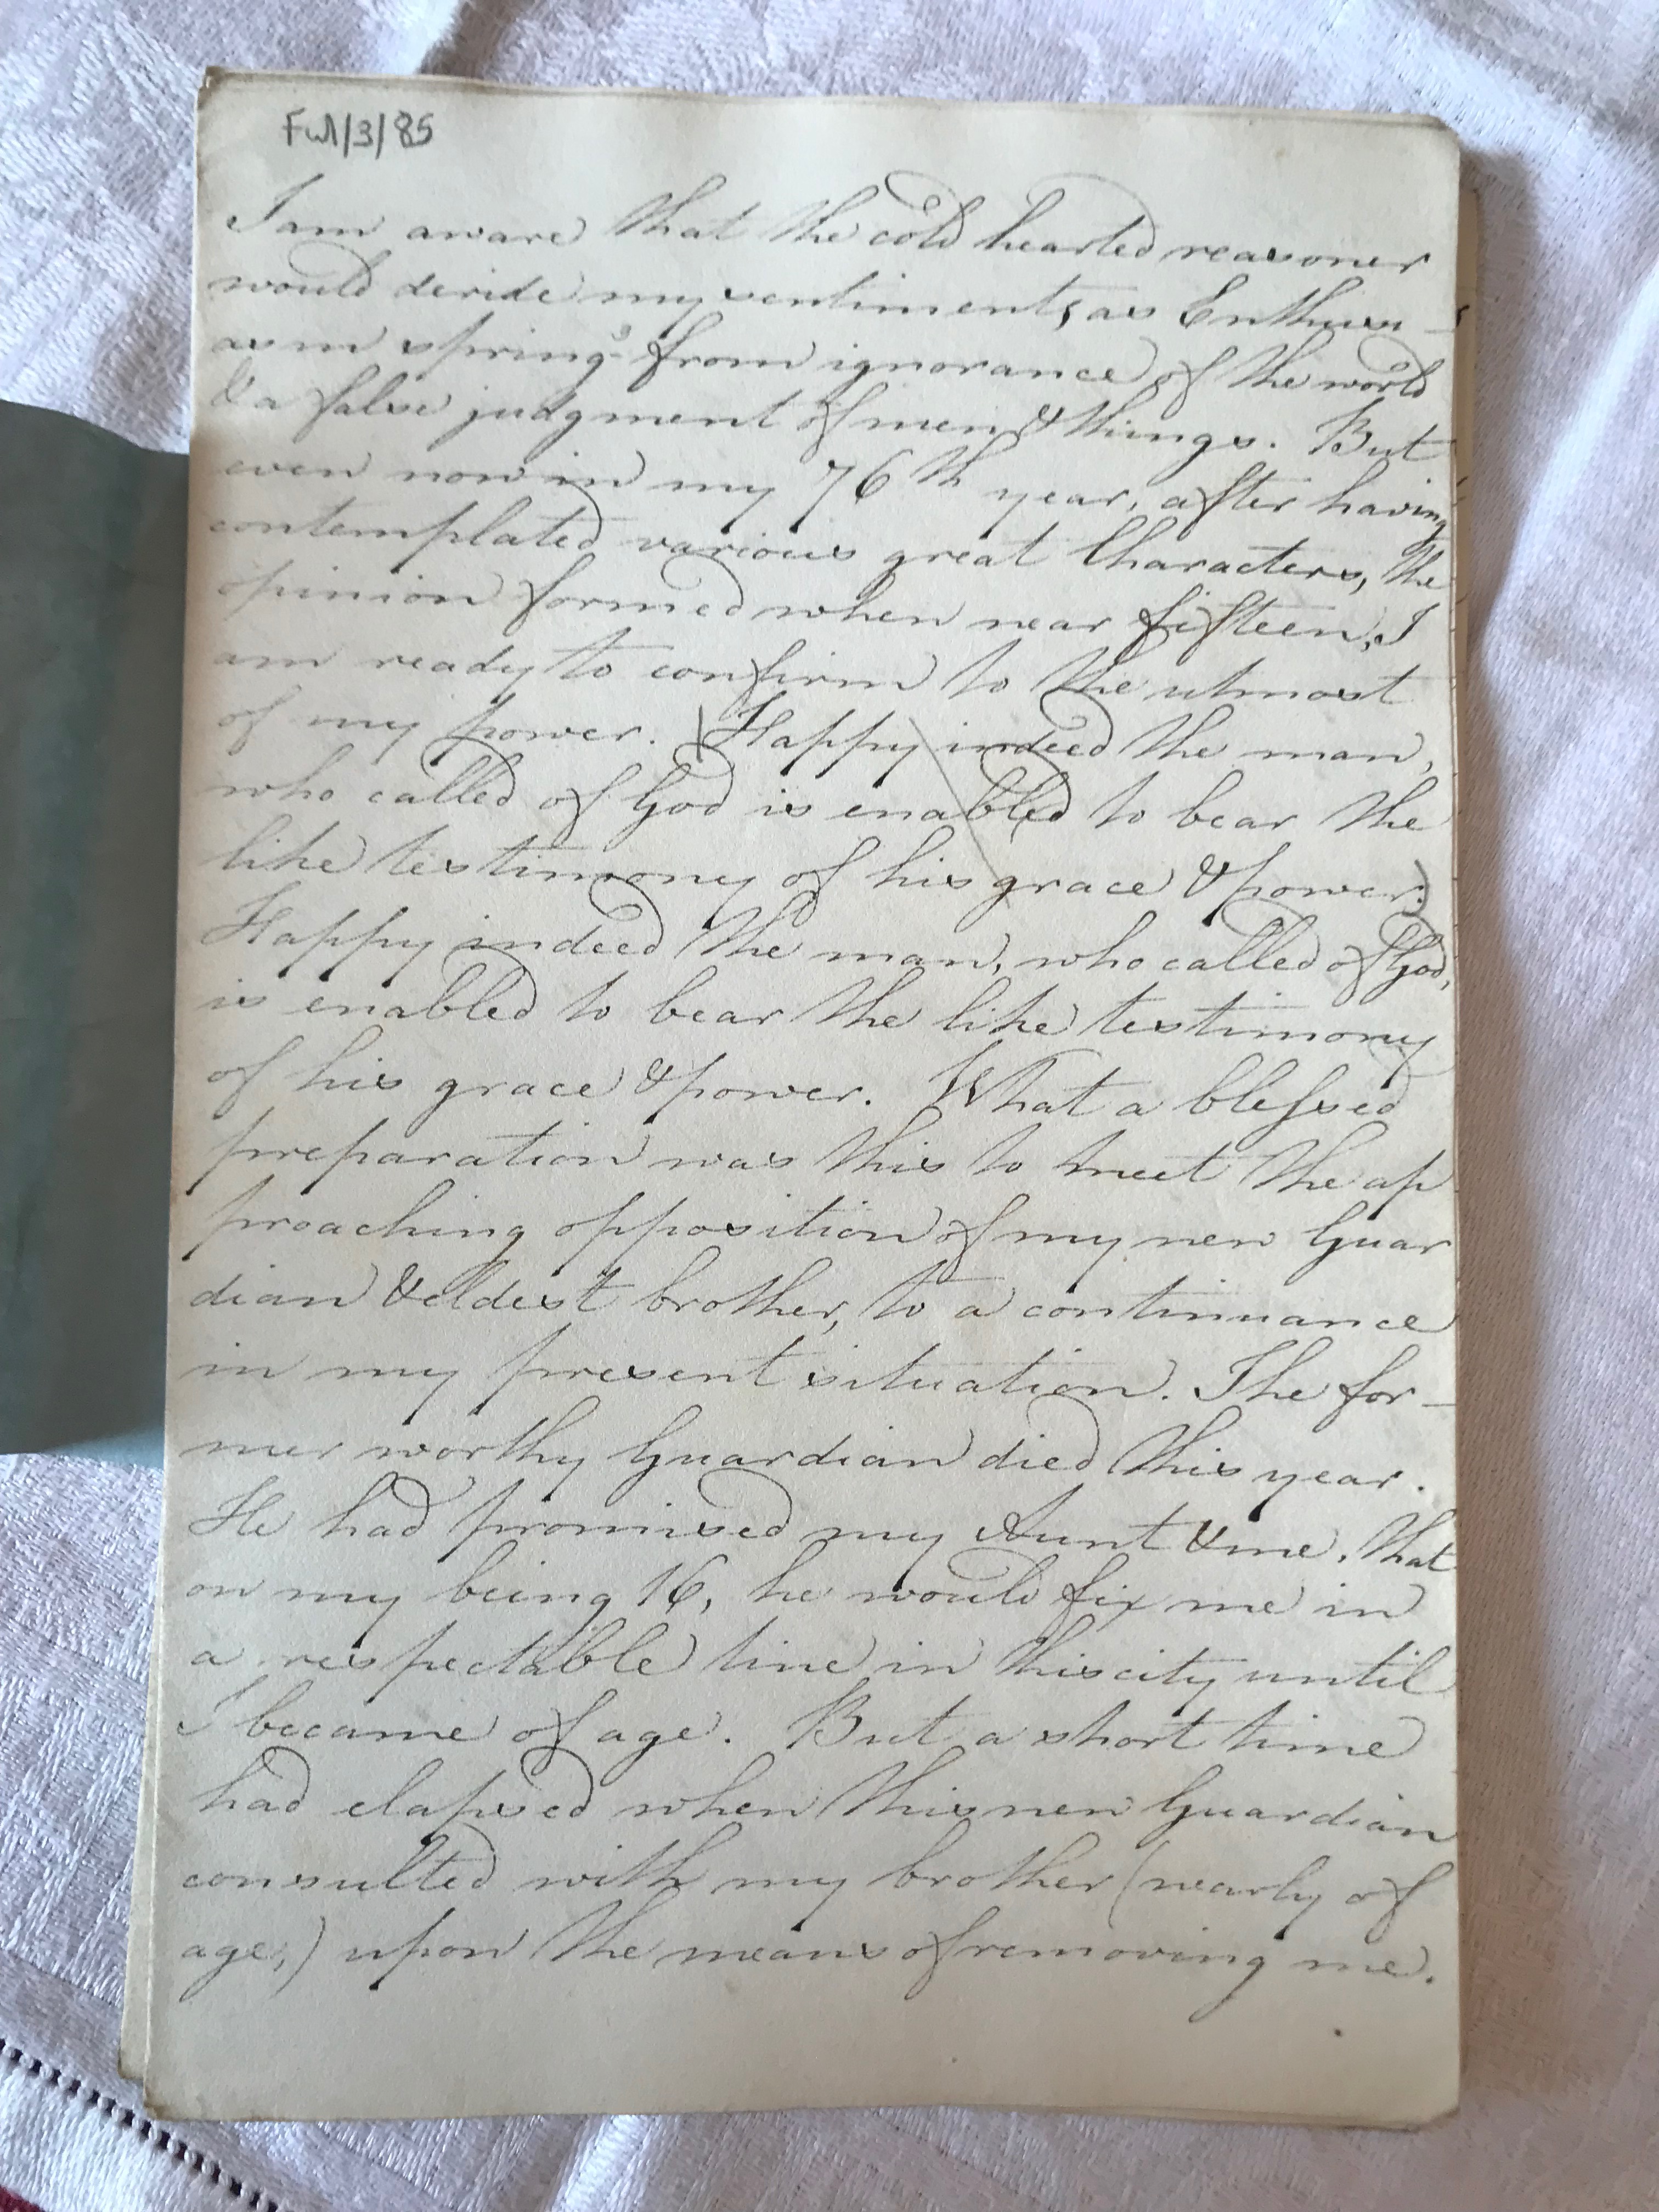 Fwl/3/85
I am aware that the cold hearted reasoner
would deride my sentiments, as Enthusi-
asm springs from ignorance of the world
& a false judgment of men & things. But
even now in my 76th year, after having
contemplated various great Characters, the
opinion formed when near fifteen, I
am ready to confirm to the utmost
of my power. (Happy indeed the man,
who called of God is enabled to bear the
like testimony of his grace & power.)
Happy indeed the man, who called of God,
is enabled to bear the like testimony
of his grace & power. What a blessed
preparation was this to meet the ap
proaching opposition of my new Guar
dian & eldest brother, to a continuance
in my present situation. The for-
mer worthy Guardian died this year.
He had promised my Aunt & me, that
on my being 16, he would fix me in
a respectable line in this city until
I became of age. But a short time
had elapsed when this new Guardian
consulted with my brother (nearly of
age,) upon the means of removing me.